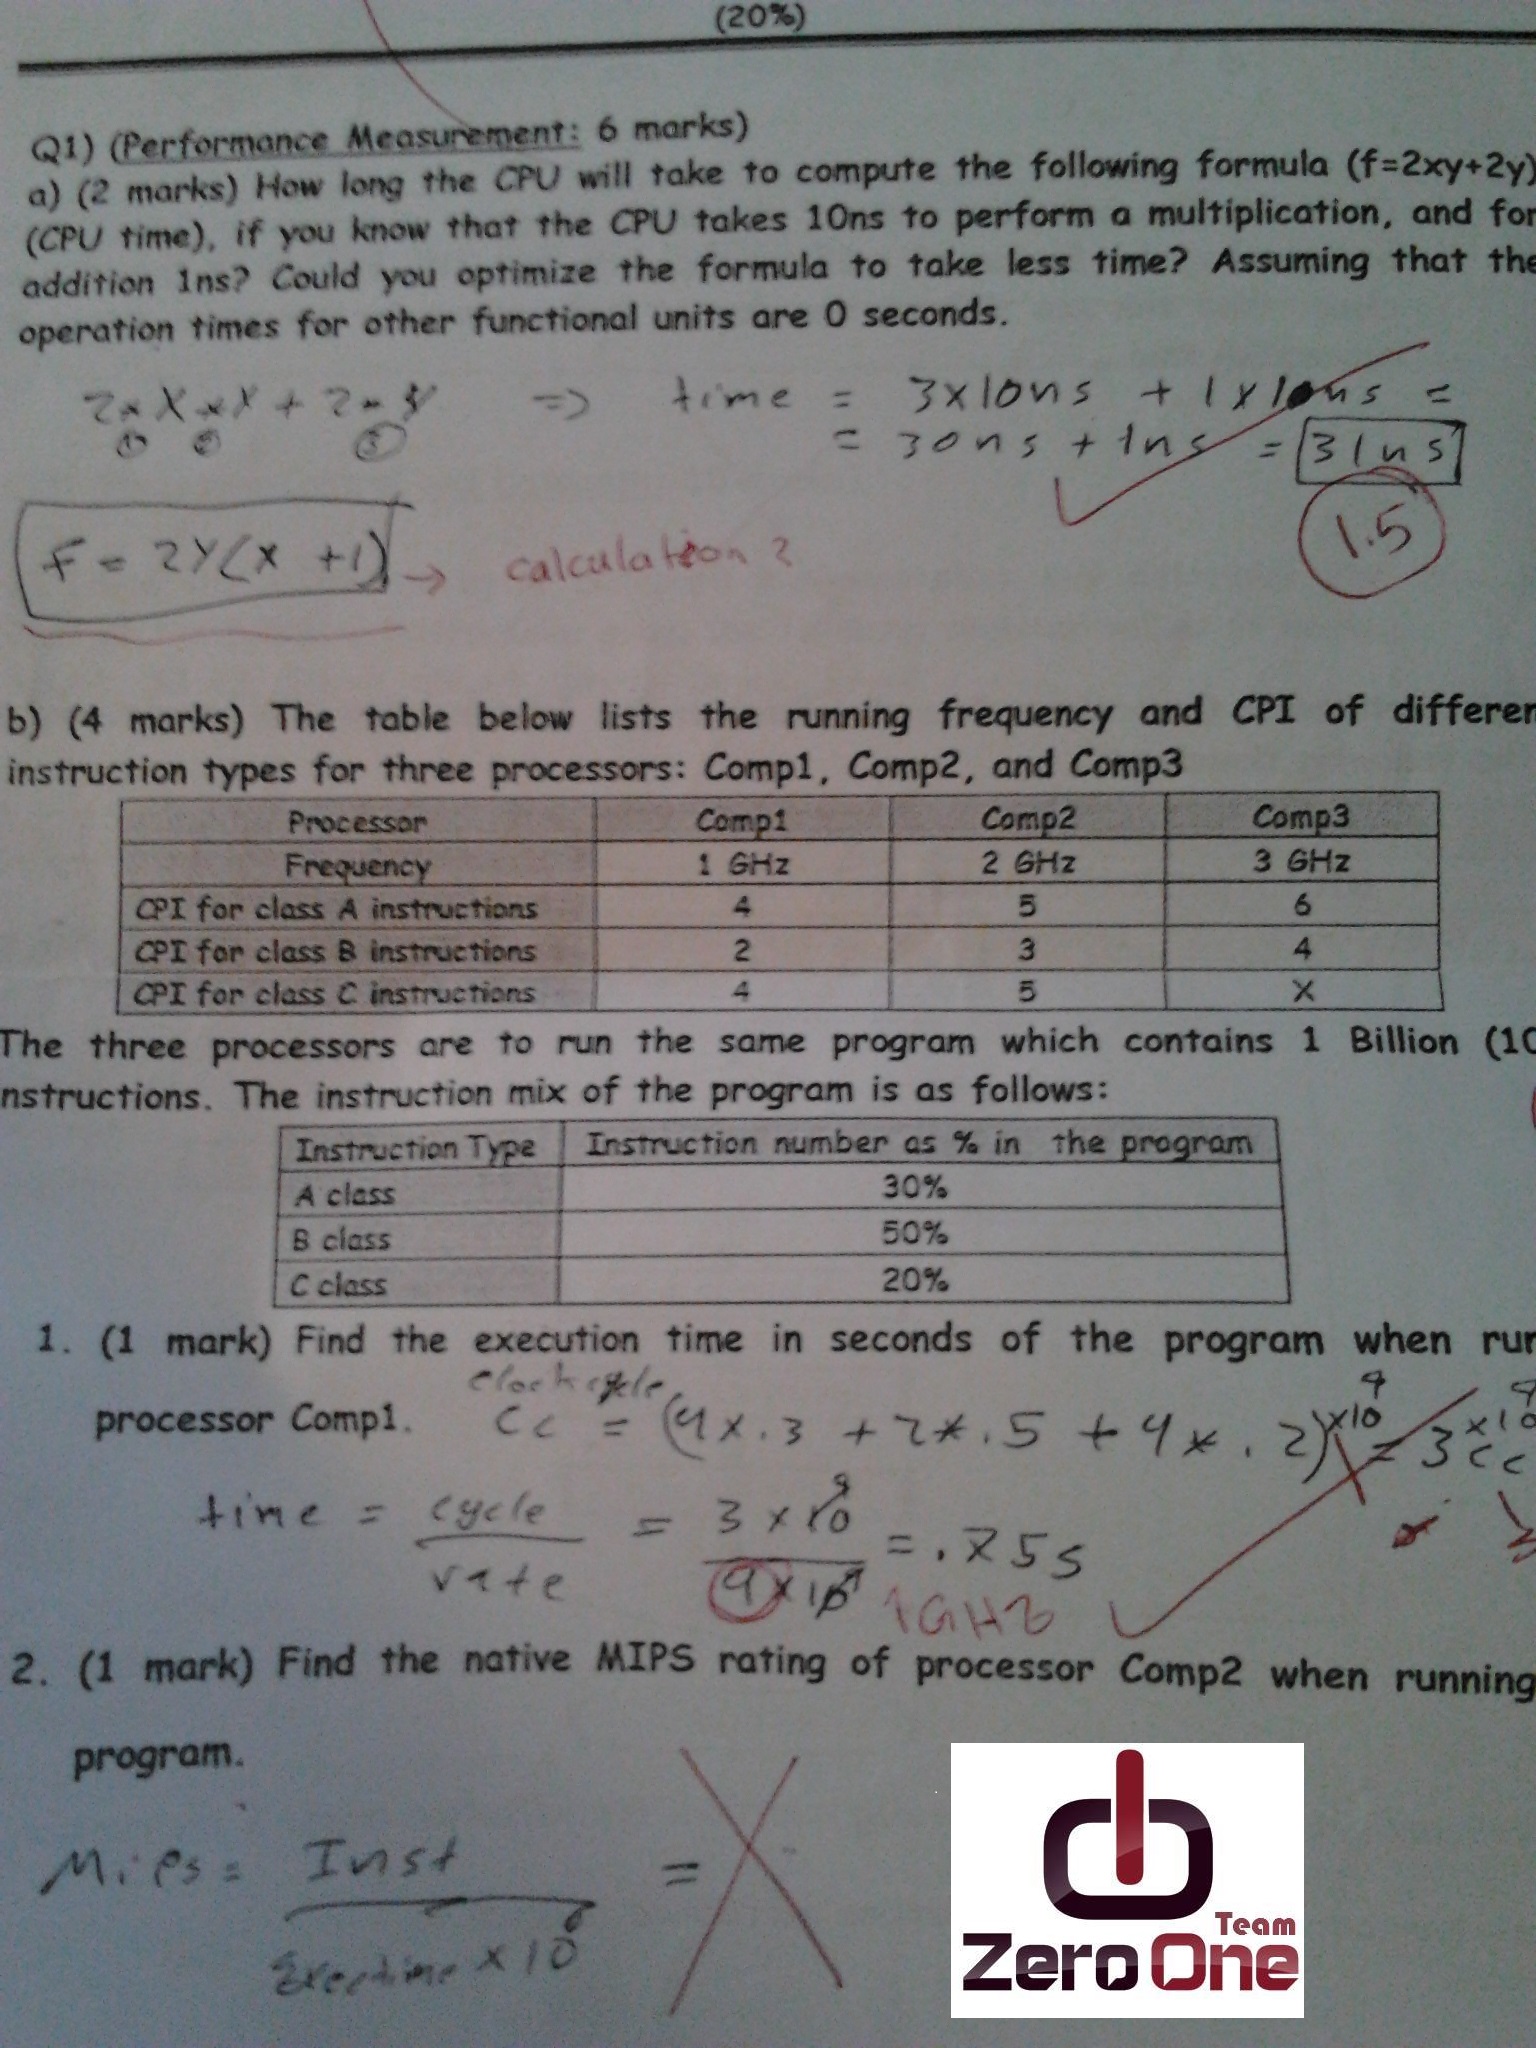 (20%)
Q1) (Performance Measurement: 6 marks)
a) (2 marks) How long the CPU will take to compute the following formula (f=2xy+2y)
(CPU time), if you know that the CPU takes 10ns to perform a multiplication, and for
addition 1ns? Could you optimize the formula to take less time? Assuming that the
operation times for other functional units are 0 seconds.
=> time = 3x10ns + 1x1 ns =
① ② ③
= 30ns + 1ns = 31ns
1.5
F = 2Y(X +1) → calculation ?
b) (4 marks) The table below lists the running frequency and CPI of differen
instruction types for three processors: Comp1, Comp2, and Comp3
Processor Comp1 Comp2 Comp3
Frequency 1 GHz 2 GHz 3 GHz
CPI for class A instructions 4 5 6
CPI for class B instructions 2 3 4
CPI for class C instructions 4 5 X
The three processors are to run the same program which contains 1 Billion (10
nstructions. The instruction mix of the program is as follows:
Instruction Type Instruction number as % in the program
A class 30%
B class 50%
C class 20%
1. (1 mark) Find the execution time in seconds of the program when run
clock cycle
processor Comp1. CC = (4x.3 + 2*.5 + 4*.2)x10⁹ = 3x10⁹ CC
time = cycle = 3 x 10⁹ = .75s
rate 4x10⁹ 1GHz
2. (1 mark) Find the native MIPS rating of processor Comp2 when running
program.
Mips = Inst =
Exectime x 10⁶
Team
Zero One